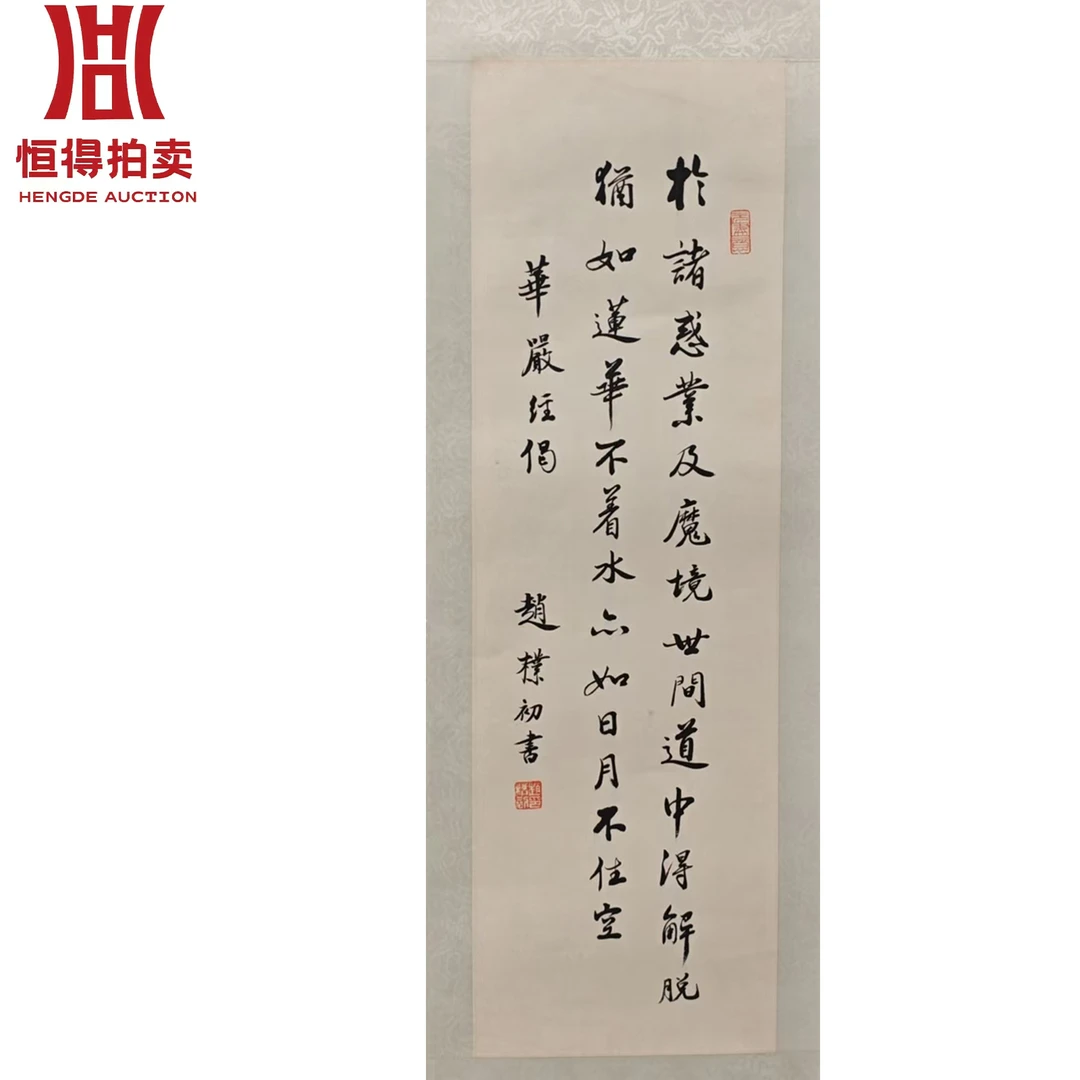 恒得拍卖
HENGDE AUCTION
於諸惑業及魔境世間道中得解脱
猶如蓮華不着水亦如日月不住空
華嚴经偈
趙樸初書